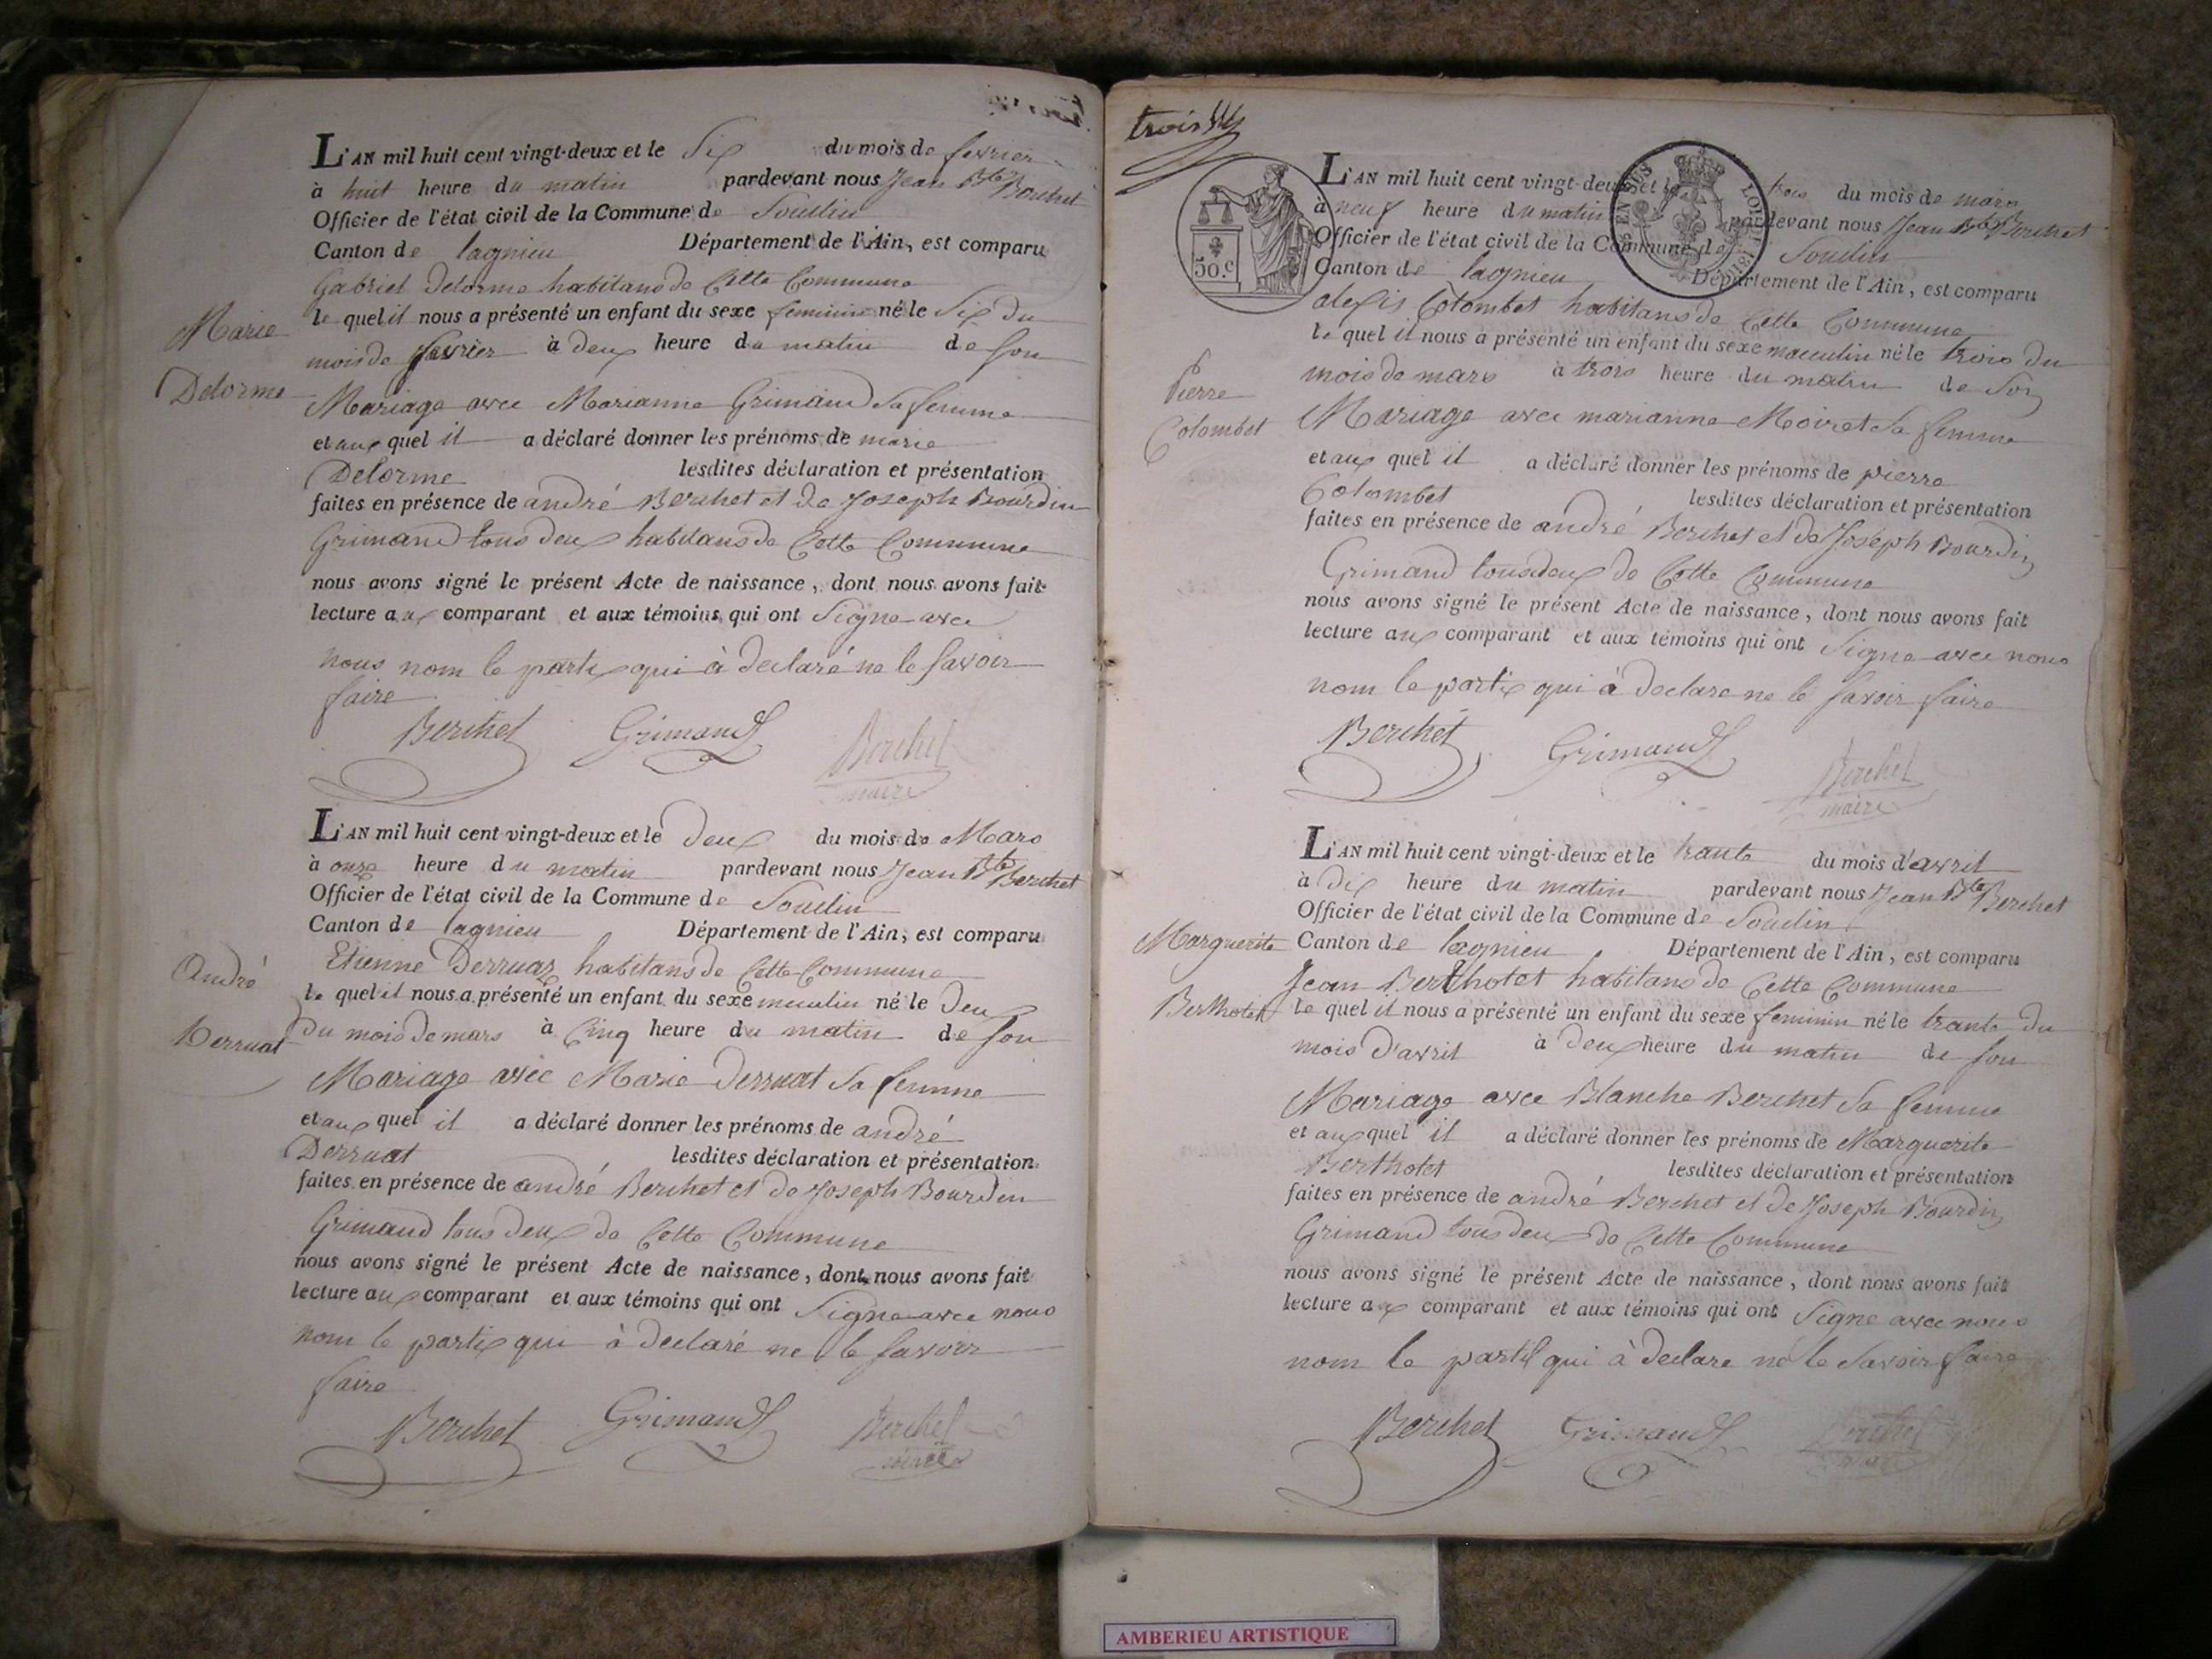 L'AN mil huit cent vingt-deux et le Six du mois de fevrier
à huit heure du matin pardevant nous Jean Bte Berchet
Officier de l'état civil de la Commune de Soudin
Canton de lagnieu Département de l'Ain, est comparu
Gabriel Delorme habitans de Cette Commune
le quel il nous a présenté un enfant du sexe feminin né le Six du
mois de fevrier à deux heure du matin de son
Marie
Delorme
Mariage avec Marianne Grimand Sa femme
et aux quel il a déclaré donner les prénoms de marie
Delorme lesdites déclaration et présentation
faites en présence de andré Berchet et de Joseph Bourdin
Grimand tous deux habitans de Cette Commune
nous avons signé le présent Acte de naissance, dont nous avons fait
lecture aux comparant et aux témoins qui ont Signe avec
nous nom le partix qui à declaré ne le savoir
faire
Berchet Grimand Berchet
maire
L'AN mil huit cent vingt-deux et le deux du mois de Mars
à onze heure du matin pardevant nous Jean Bte Berchet
Officier de l'état civil de la Commune de Soudin
Canton de lagnieu Département de l'Ain, est comparu
Etienne Derruaz habitans de Cette Commune
le quel il nous a présenté un enfant du sexe né le Deux
du mois de mars à Cinq heure du matin de son
André
Derruat
Mariage avec Marie Derruat Sa femme
et aux quel il a déclaré donner les prénoms de andré
Derruat lesdites déclaration et présentation
faites en présence de andré Berchet et de Joseph Bourdin
Grimand tous deux de Cette Commune
nous avons signé le présent Acte de naissance, dont nous avons fait
lecture aux comparant et aux témoins qui ont Signe avec nous
nom le partix qui à declaré ne le savoir
faire
Berchet Grimand Berchet
maire
trois
50.c
L'AN mil huit cent vingt-deux et le trois du mois de mars
à neuf heure du matin pardevant nous Jean Bte Berchet
Officier de l'état civil de la Commune de Soudin
Canton de lagnieu Département de l'Ain, est comparu
alexis Colombet habitans de Cette Commune
le quel il nous a présenté un enfant du sexe masculin né le trois du
mois de mars à trois heure du matin de Son
Pierre
Colombet
Mariage avec marianne Moiret Sa femme
et aux quel il a déclaré donner les prénoms de pierre
Colombet lesdites déclaration et présentation
faites en présence de andré Berchet et de Joseph Bourdin
Grimand tous deux de Cette Commune
nous avons signé le présent Acte de naissance, dont nous avons fait
lecture aux comparant et aux témoins qui ont Signe avec nous
nom le partix qui à declare ne le savoir faire
Berchet Grimand Berchet
maire
L'AN mil huit cent vingt-deux et le trante du mois d'avril
à dix heure du matin pardevant nous Jean Bte Berchet
Officier de l'état civil de la Commune de Soudin
Canton de lagnieu Département de l'Ain, est comparu
Jean Berthotet habitans de Cette Commune
le quel il nous a présenté un enfant du sexe feminin né le trante du
mois d'avril à deux heure du matin de son
Marguerite
Berthotet
Mariage avec Blanche Berchet Sa femme
et aux quel il a déclaré donner les prénoms de Marguerite
Berthotet lesdites déclaration et présentation
faites en présence de andré Berchet et de Joseph Bourdin
Grimand tous deux de Cette Commune
nous avons signé le présent Acte de naissance, dont nous avons fait
lecture aux comparant et aux témoins qui ont Signe avec nous
nom le partix qui à declare ne le Savoir faire
Berchet Grimand Berchet
AMBERIEU ARTISTIQUE